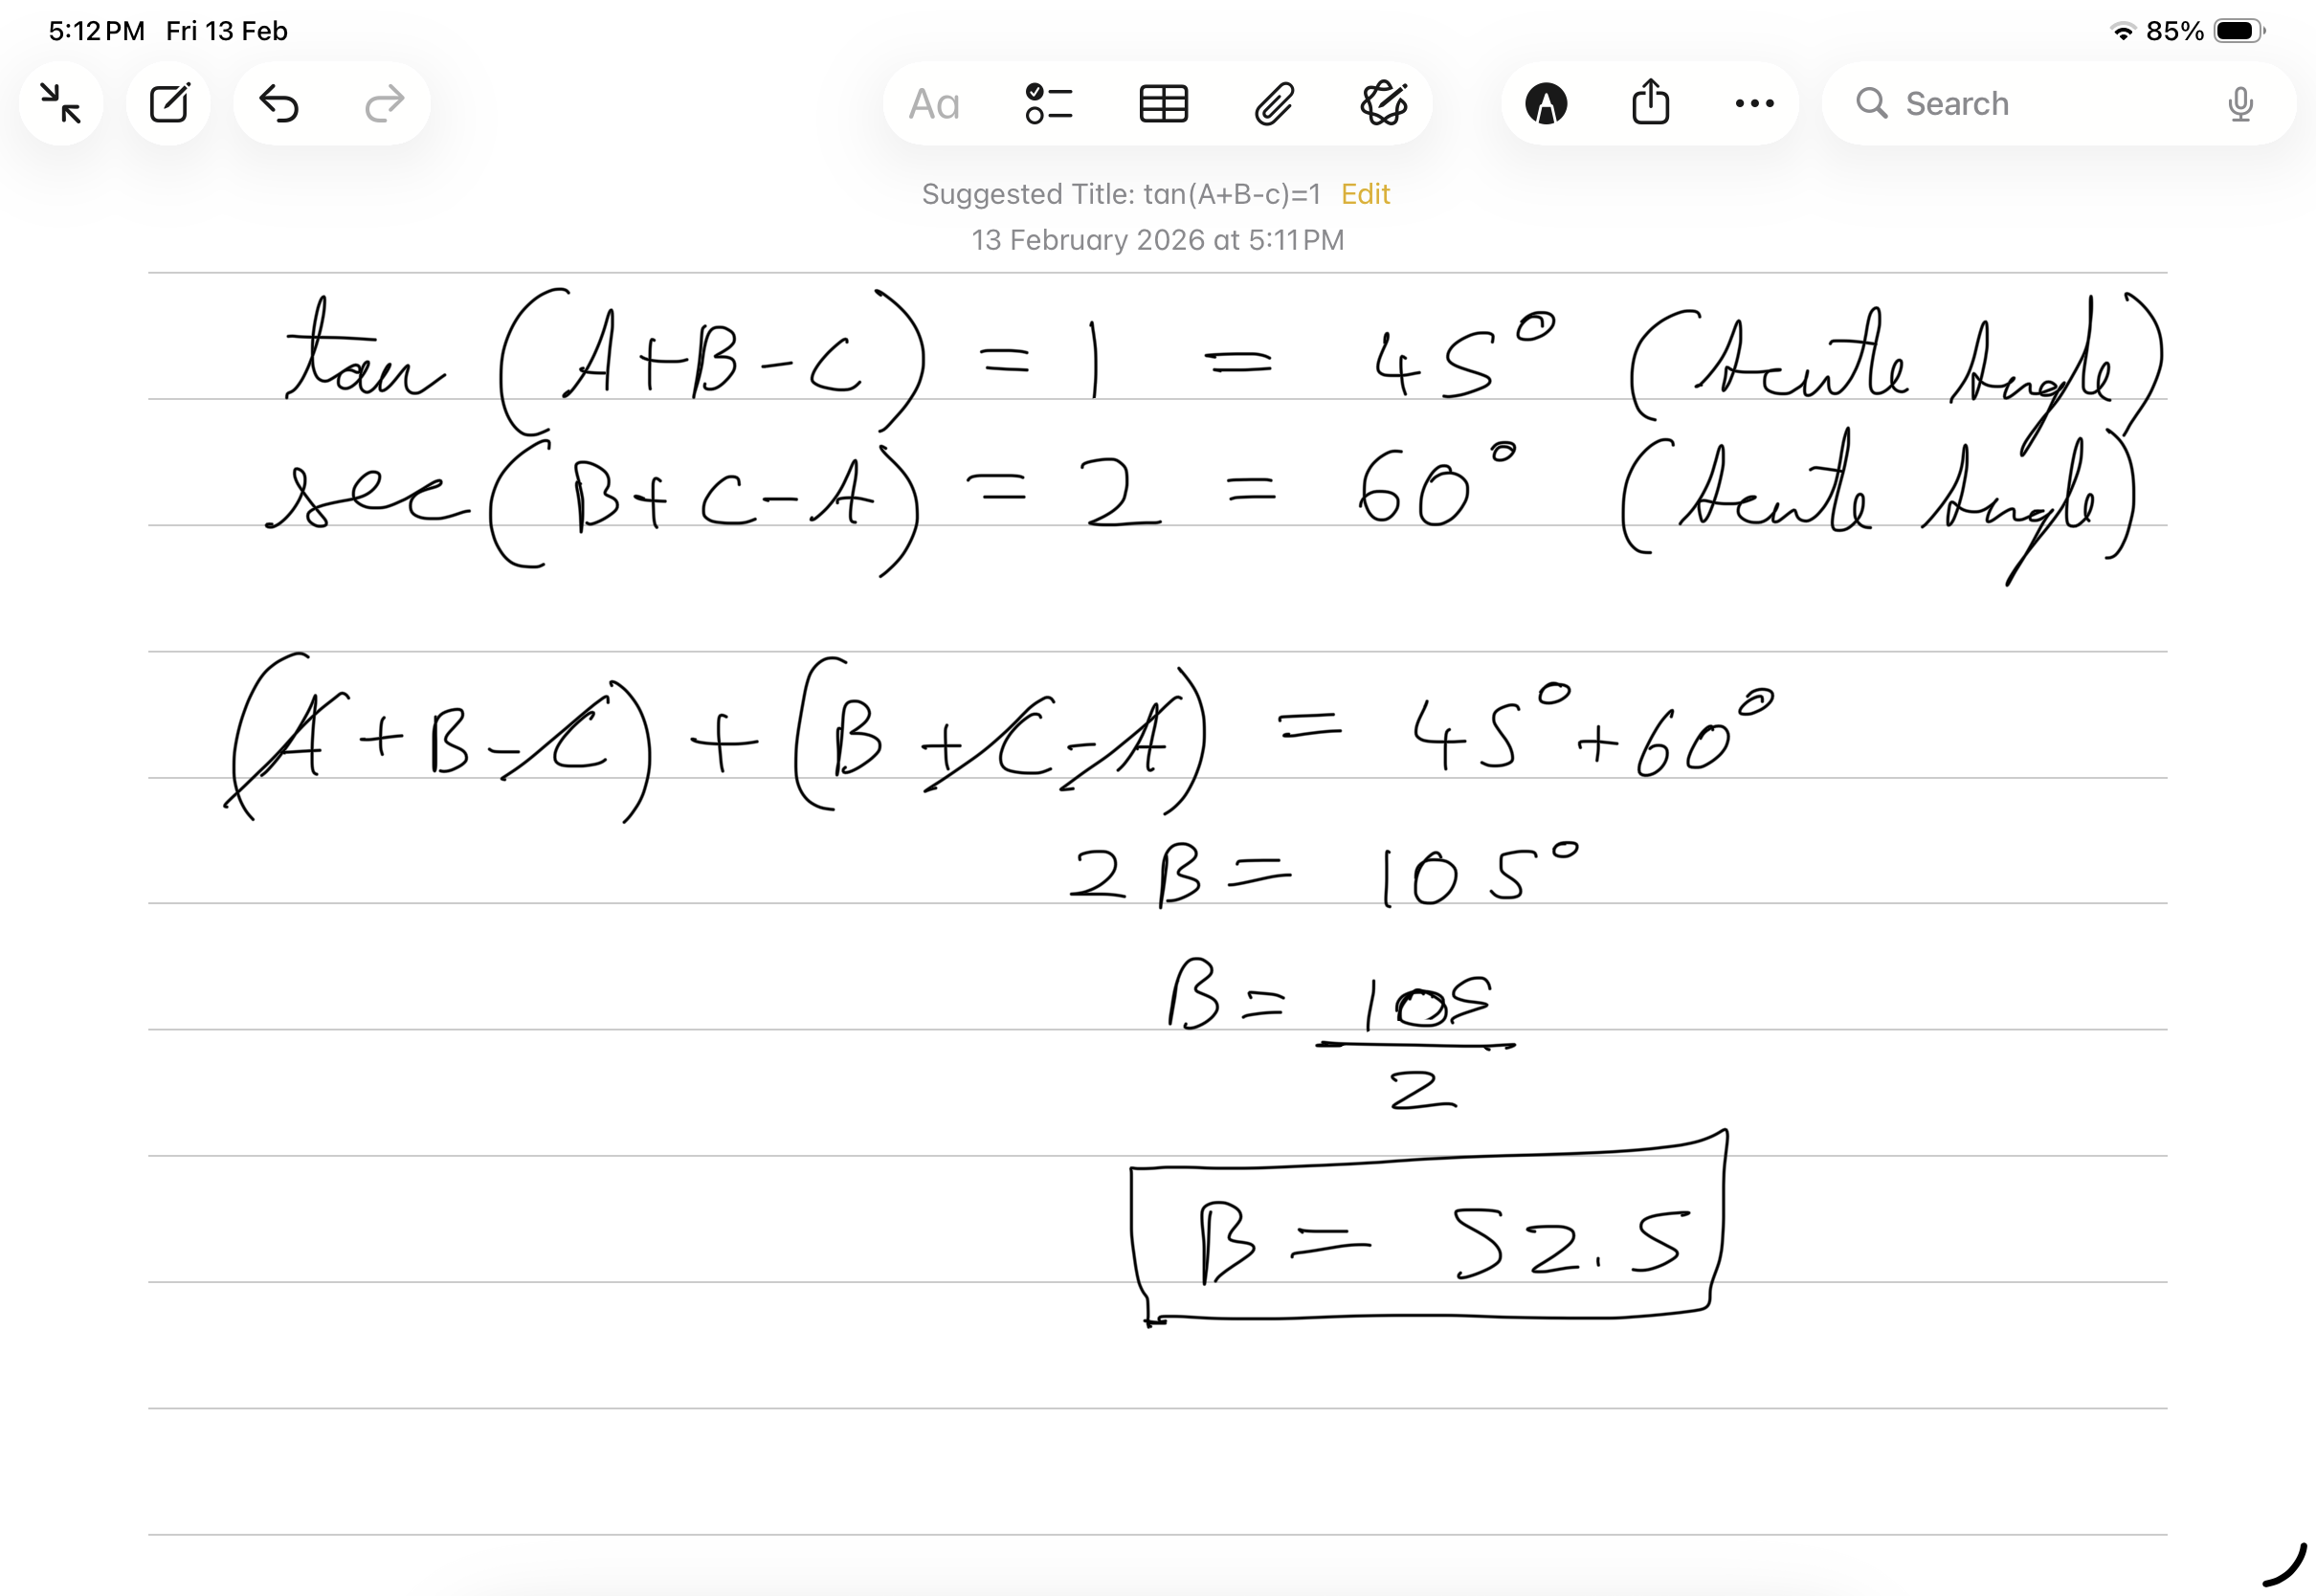 5:12 PM Fri 13 Feb 85%
Aa Search
Suggested Title: tan(A+B-c)=1 Edit
13 February 2026 at 5:11 PM
tan (A+B-C) = 1 = 45° (Acute Angle)
sec (B+C-A) = 2 = 60° (Acute Angle)
(A+B-C) + (B+C-A) = 45°+60°
2B = 105°
B = 105
2
B = 52.5